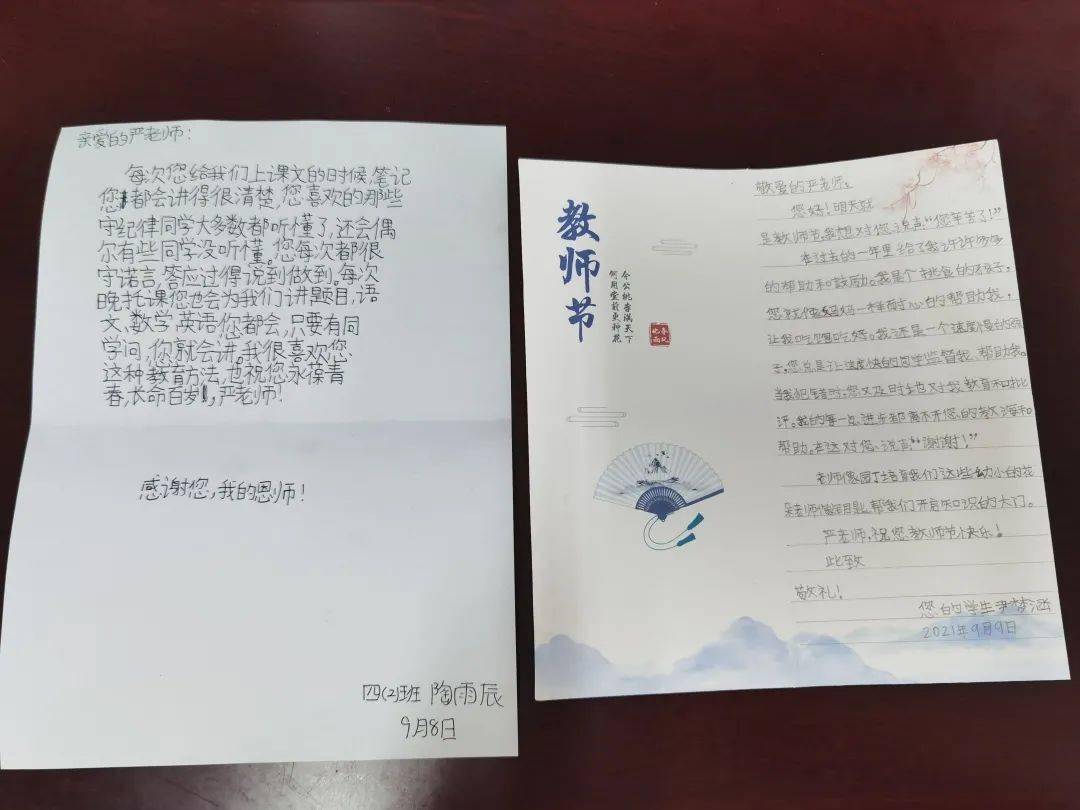 亲爱的严老师:
每次您给我们上课文的时候,笔记
您都会讲得很清楚,您喜欢的那些
守纪律同学大多数都听懂了,还会偶
尔有些同学没听懂。您每次都很
守诺言,答应过得说到做到。每次
晚托课您也会为我们讲题目,语
文、数学英语你都会,只要有同
学问,你就会讲。我很喜欢您
这种教育方法,也祝您永葆青
春,长命百岁,严老师!
感谢您,我的恩师!
四(2)班 陶雨辰
9月8日
教师节
令公桃李满天下
何用堂前更种花
敬爱的严老师:
您好!明天就
是教师节,我想对您说声“您辛苦了!”
在过去的一年里给了我许许多多
的帮助和鼓励。我是个挑食的孩子,
您就像妈妈一样耐心的帮助我,
让我吃饱吃好。我还是一个速度慢的孩
子,您总是让速度快的同学监督我、帮助我。
当我犯错时,您又及时地对我教育和批
评。我的每一点进步都离不开您的教海和
帮助。在这对您说声“谢谢!”
老师像园丁培育我们这些幼小的花
朵,老师像钥匙,帮我们开启知识的大门。
严老师,祝您教师节快乐!
此致
敬礼!
您的学生 梦涵
2021年9月9日